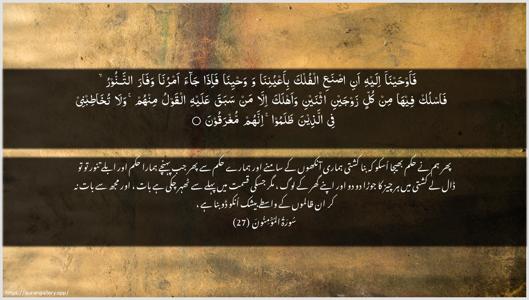 فَاَوْحَيْنَاۤ اِلَيْهِ اَنِ اصْنَعِ الْفُلْكَ بِاَعْيُنِنَا وَ وَحْيِنَا فَاِذَا جَآءَ اَمْرُنَا وَفَارَ التَّـنُّوْرُ ۙ
فَاسْلُكْ فِيْهَا مِنْ كُلٍّ زَوْجَيْنِ اثْنَيْنِ وَاَهْلَكَ اِلَّا مَنْ سَبَقَ عَلَيْهِ الْقَوْلُ مِنْهُمْ ۚ وَلَا تُخَاطِبْنِىْ
فِى الَّذِيْنَ ظَلَمُوْا ۚ اِنَّهُمْ مُّغْرَقُوْنَ ○
پھر ہم نے حکم بھیجا اُسکو کہ بنا کشتی ہماری آنکھوں کے سامنے اور ہمارے حکم سے پھر جب پہنچے ہمارا حکم اور ابلے تنور تو تو
ڈال لے کشتی میں ہر چیز کا جوڑا دو دو اور اپنے گھر کے لوگ ، مگر جسکی قسمت میں پہلے سے ٹھہر چکی ہے بات ، اور مجھ سے بات نہ
کر ان ظالموں کے واسطے بیشک اُنکو ڈوبنا ہے ،
سُوْرَةُ الْمُؤْمِنُوْنَ (27)
https://qurangallery.app/